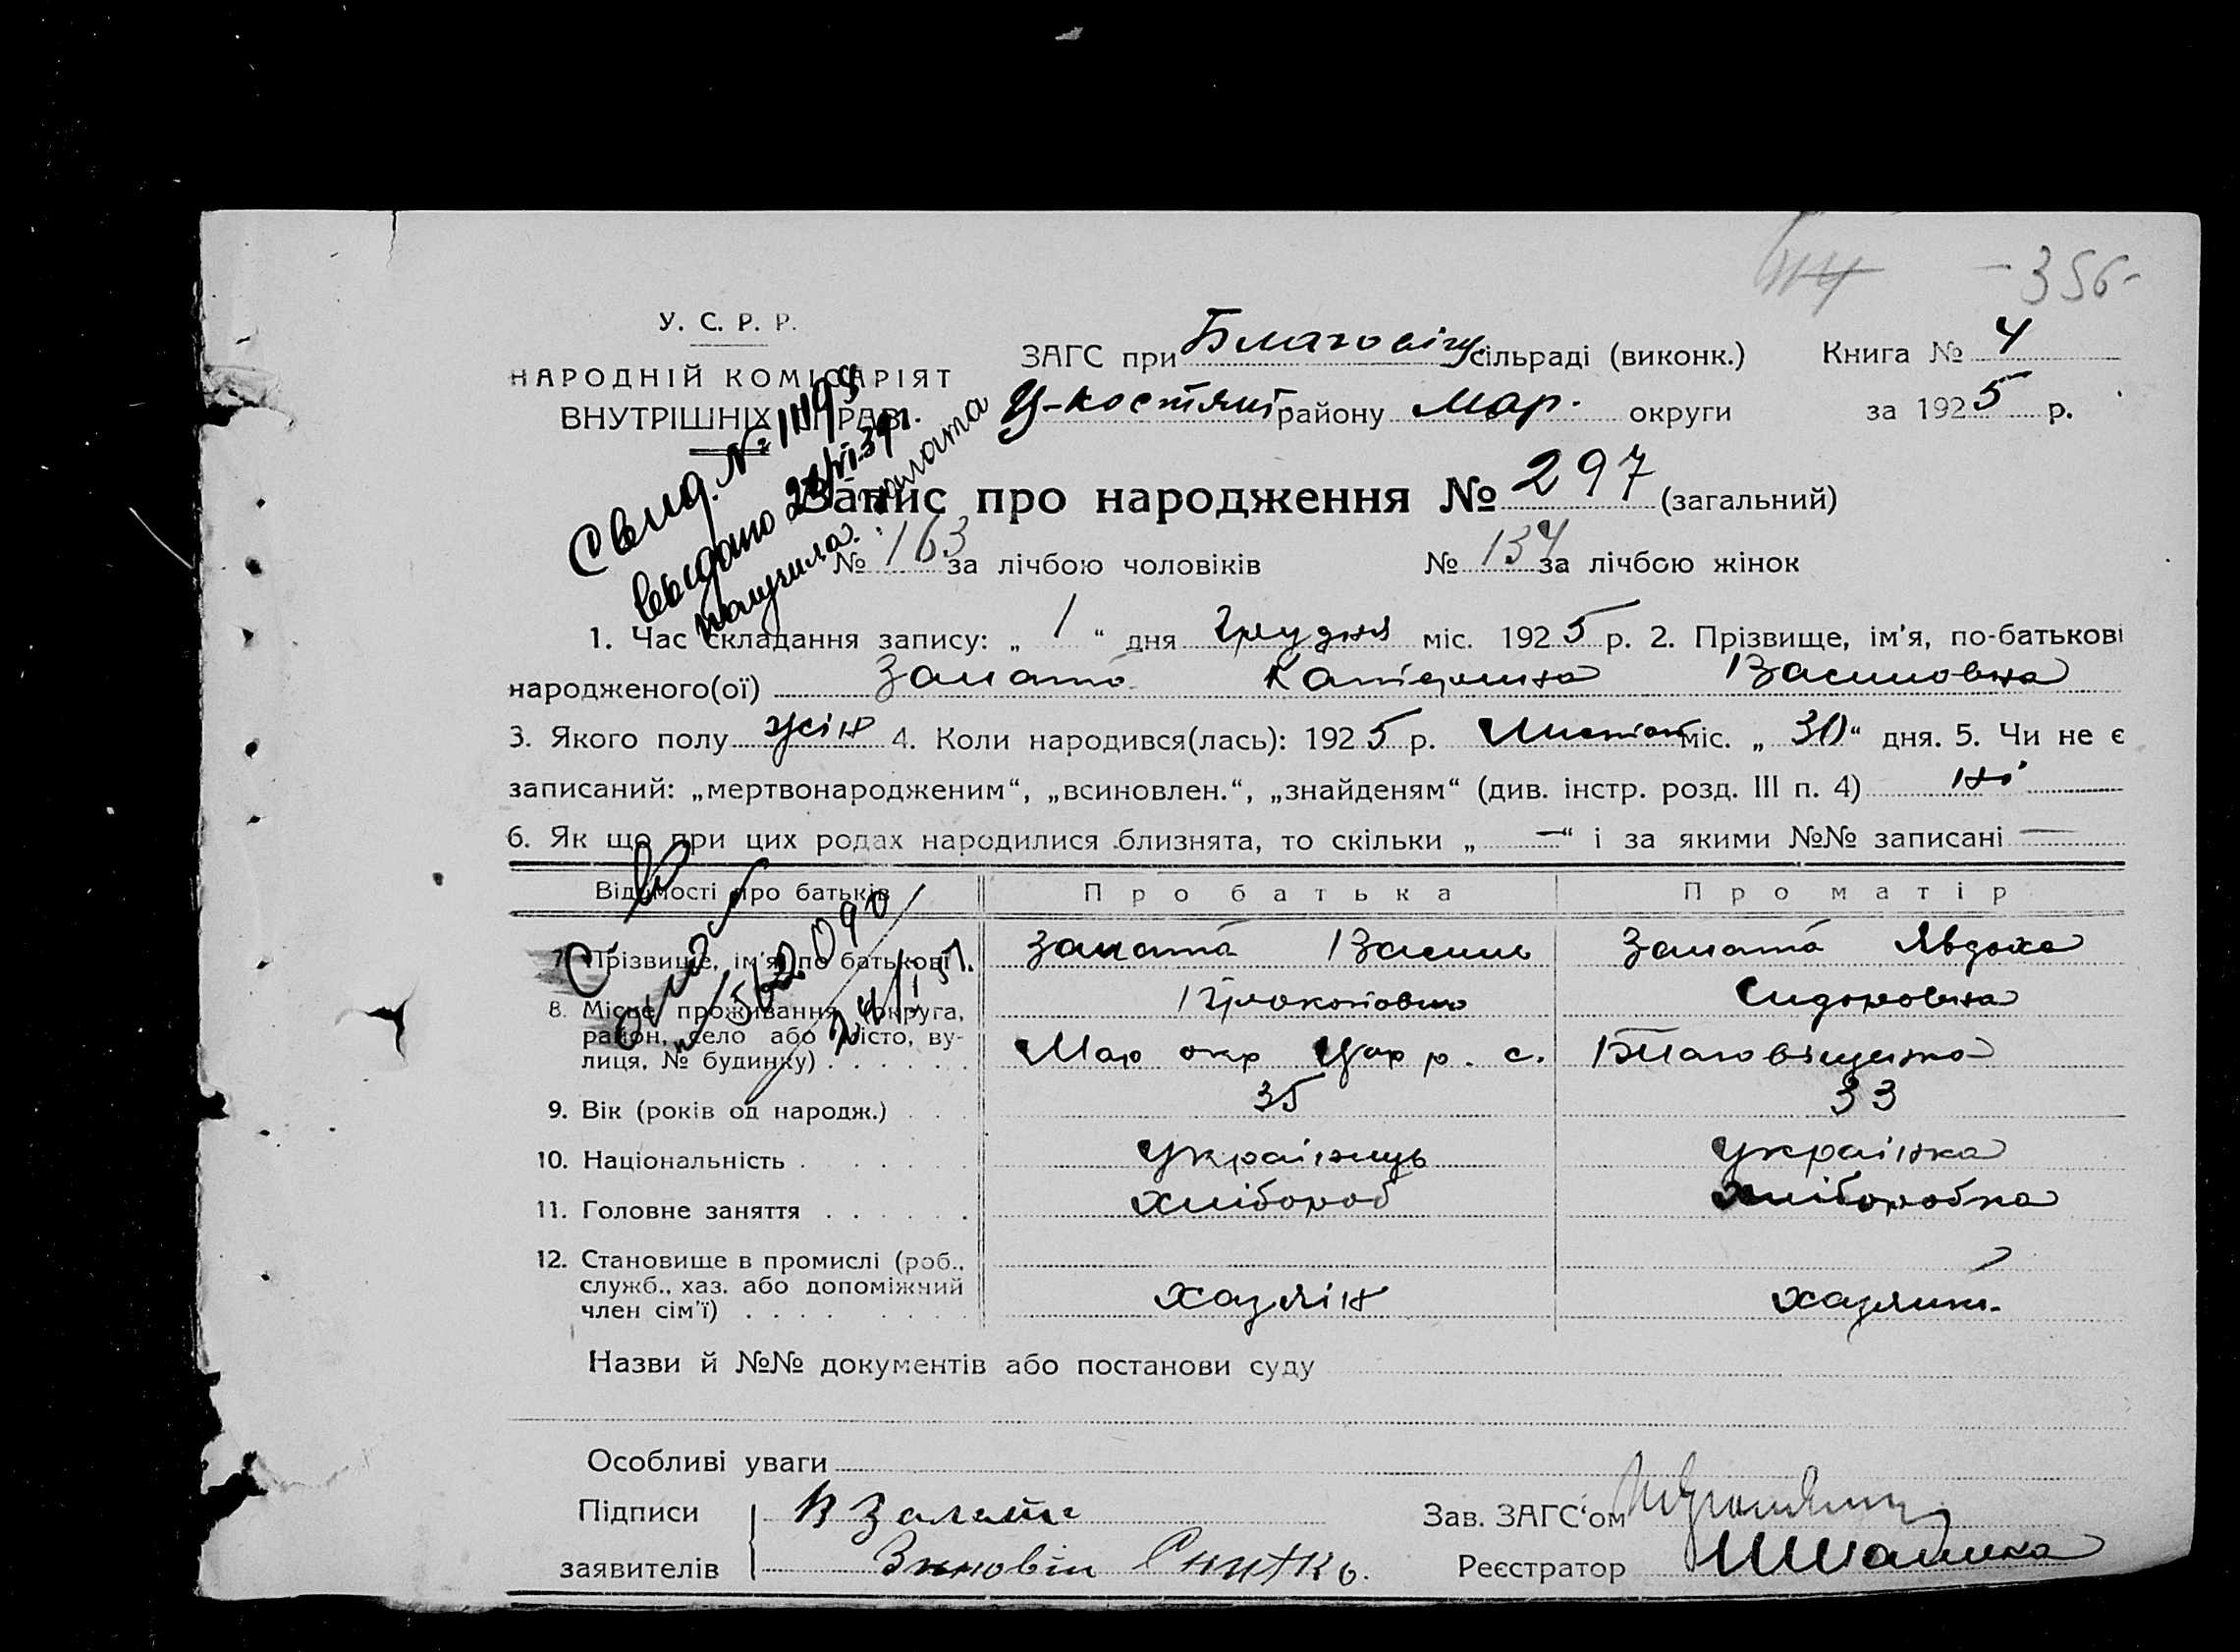 -356-
У. С. Р. Р.
НАРОДНІЙ КОМІСАРІЯТ
ВНУТРІШНІХ СПРАВ.
ЗАГС при Благовіщ сільраді (виконк.) Книга № 4
У-костянт району Мар. округи за 1925 р.
Свид. №
выдано
получила:
Запис про народження № 297 (загальний)
№ 163 за лічбою чоловіків № 134 за лічбою жінок
1. Час складання запису: „ 1 “ дня грудня міс. 1925 р. 2. Прізвище, ім’я, по-батькові
народженого(ої) Залата Катерина Василовна
3. Якого полу жін 4. Коли народився(лась): 1925 р. Листоп міс. „ 30 “ дня. 5. Чи не є
записаний: „мертвонародженим“, „всиновлен.“, „знайденям“ (див. інстр. розд. III п. 4) ні
6. Як що при цих родах народилися близнята, то скільки „ — “ і за якими №№ записані —
Відомості про батьків Про батька Про матір
7. Прізвище, ім’я, по батькові. Залата Василь Залата Явдоха
Прокопович Сидоровна
8. Місце проживання (округа,
район, село або місто, ву-
лиця, № будинку) . . . . . . Мар окр р. с. Благовіщенка
9. Вік (років од народж.) . . . 35 33
10. Національність . . . . . . . українець українка
11. Головне заняття . . . . . . хлібороб хліборобка
12. Становище в промислі (роб.,
служб., хаз. або допоміжний
член сім’ї) . . . . . . . . хазяін хазяйка
Назви й №№ документів або постанови суду
Особливі уваги
Підписи В Залата Зав. ЗАГС‘ом
заявителів Зиновій Снитко. Реєстратор